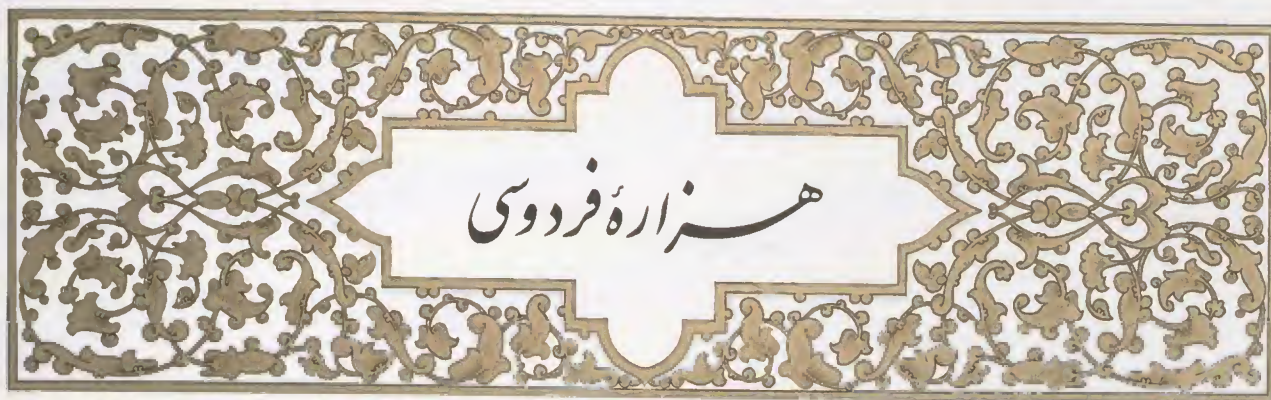 هزارهٔ فردوسی